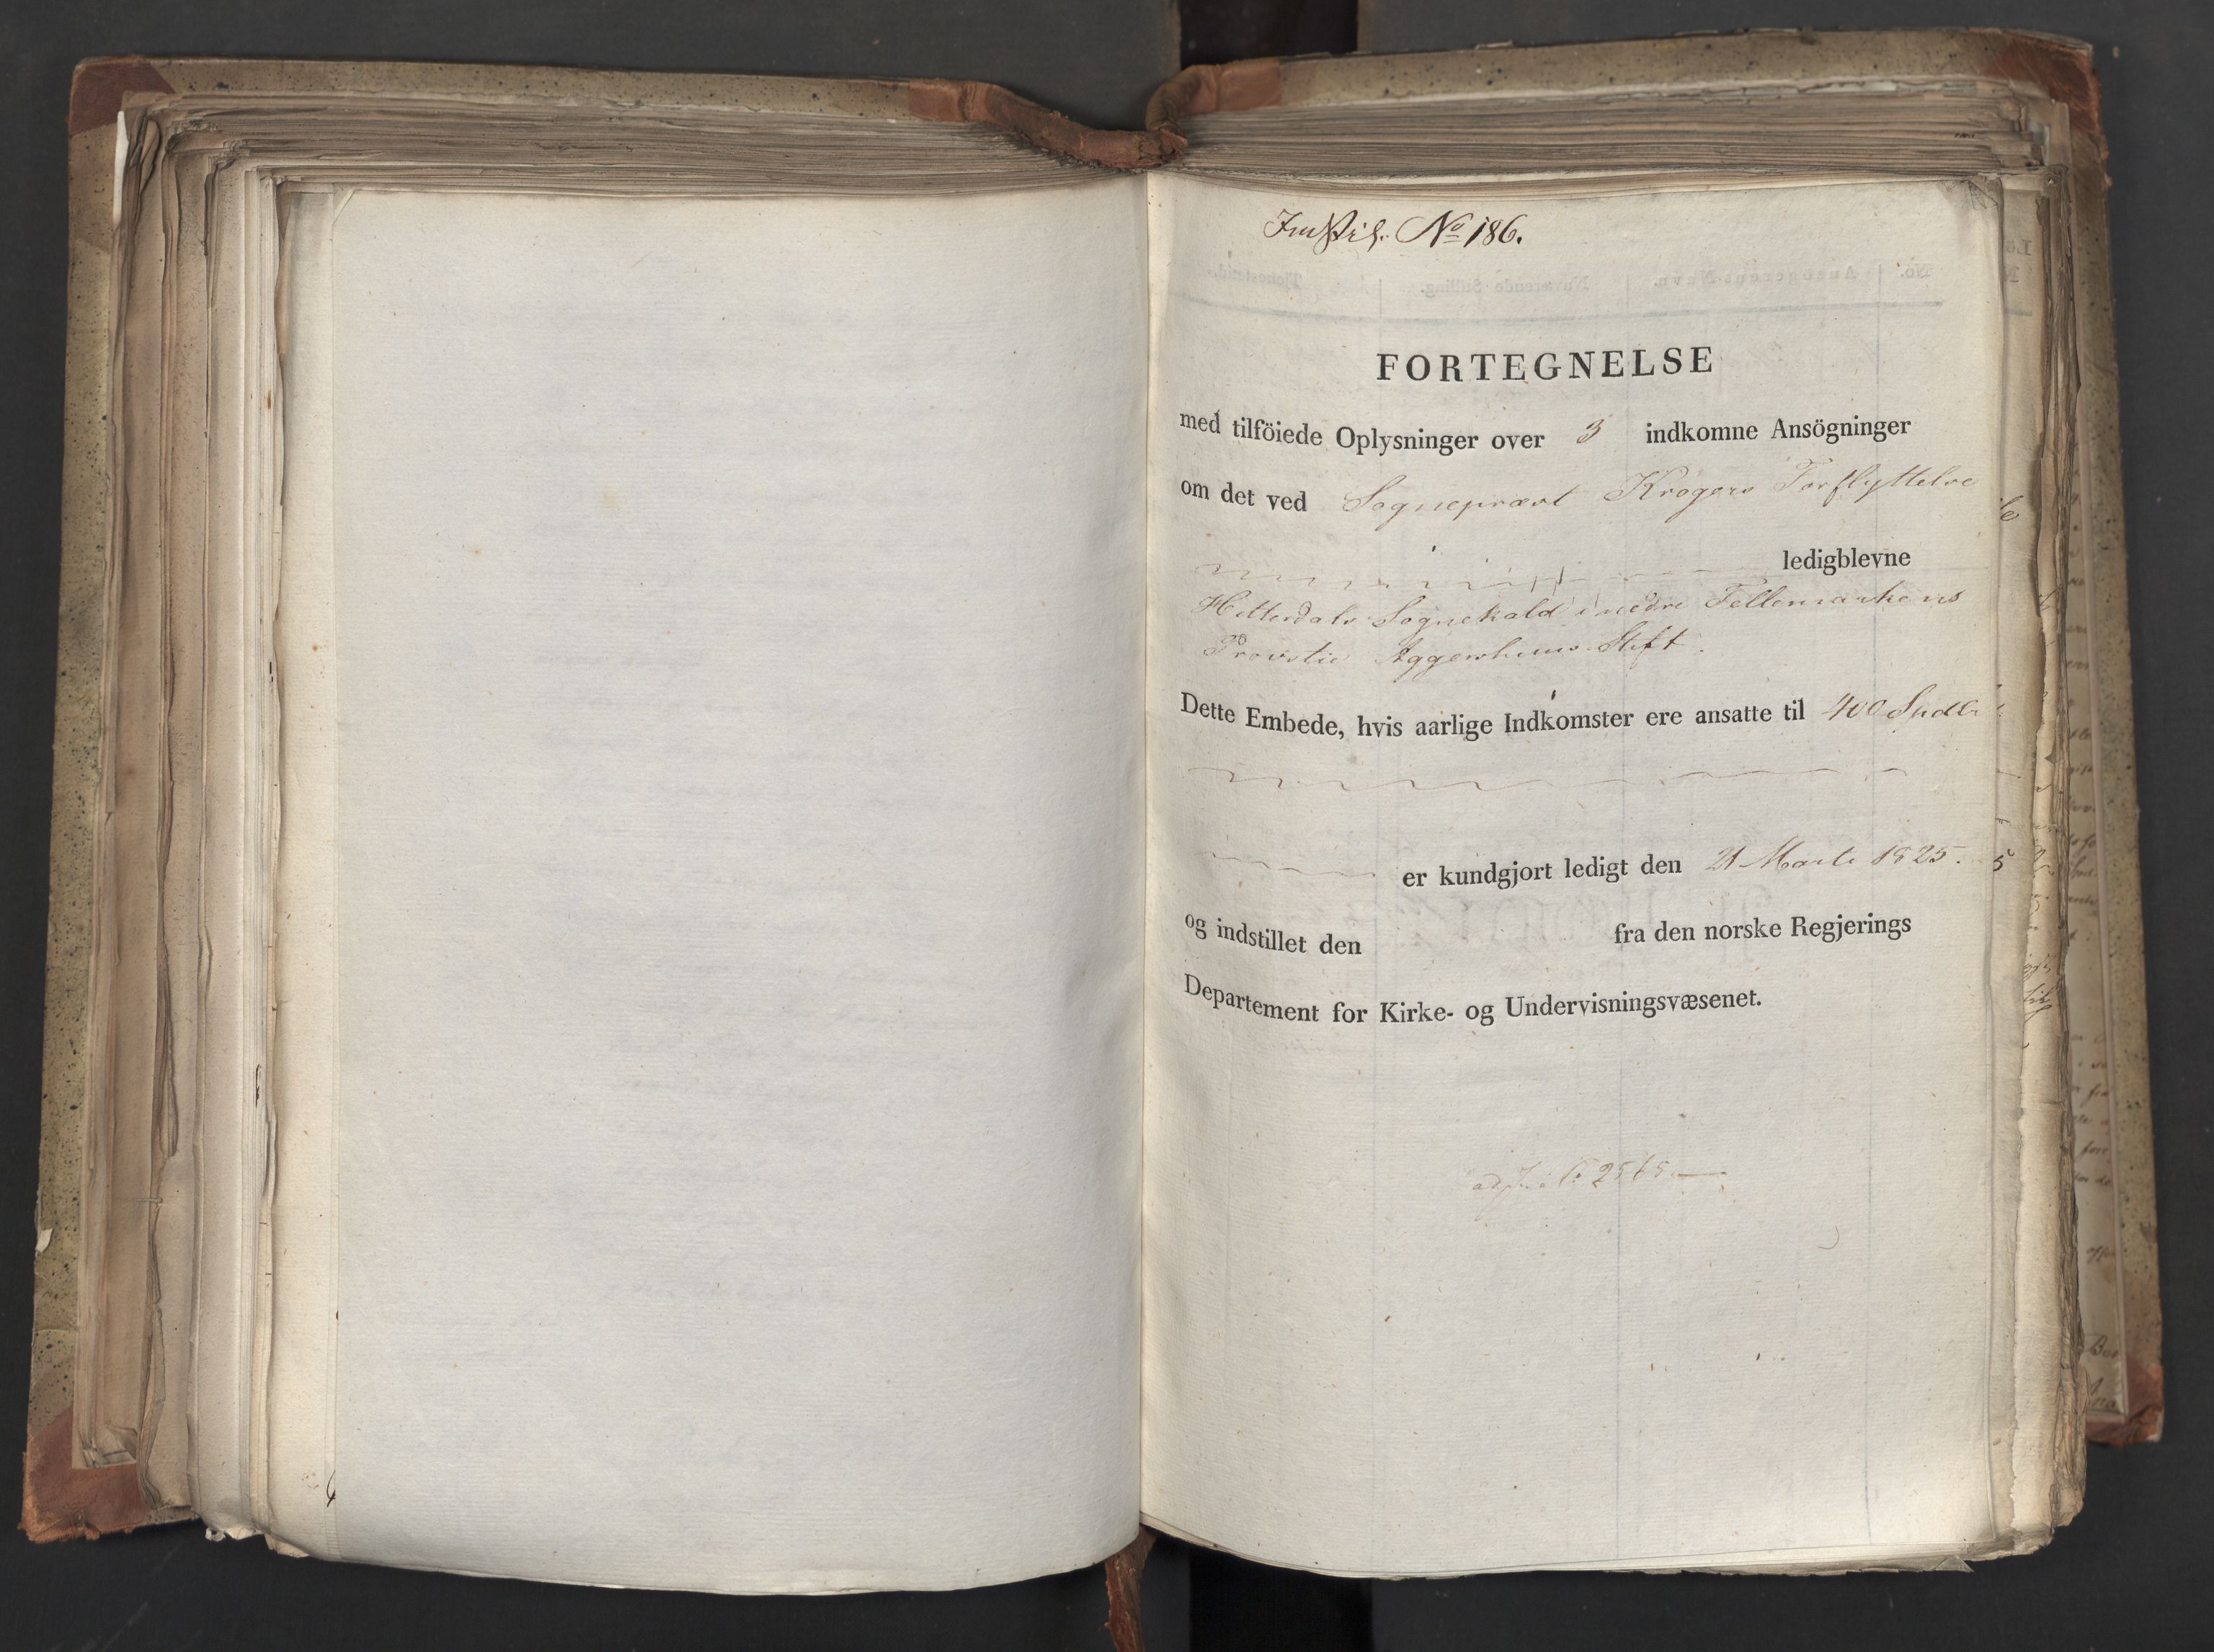 No 186.
FORTEGNELSE
med tilföiede Oplysninger over 3 indkomne Ansögninger
om det ved Sognepræst Krogers Forflyttelse
ledigblevne
Hitterdals Sognekald i nedre Tellemarkens
Provstie Aggershuus Stift.
Dette Embede, hvis aarlige Indkomster ere ansatte til 400 Spdlr
er kundgjort ledigt den 21 Marts 1825.
og indstillet den fra den norske Regjerings
Departement for Kirke- og Undervisningsvæsenet.